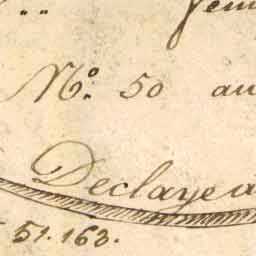 Nº. 50 au
Declaye a
51.163.